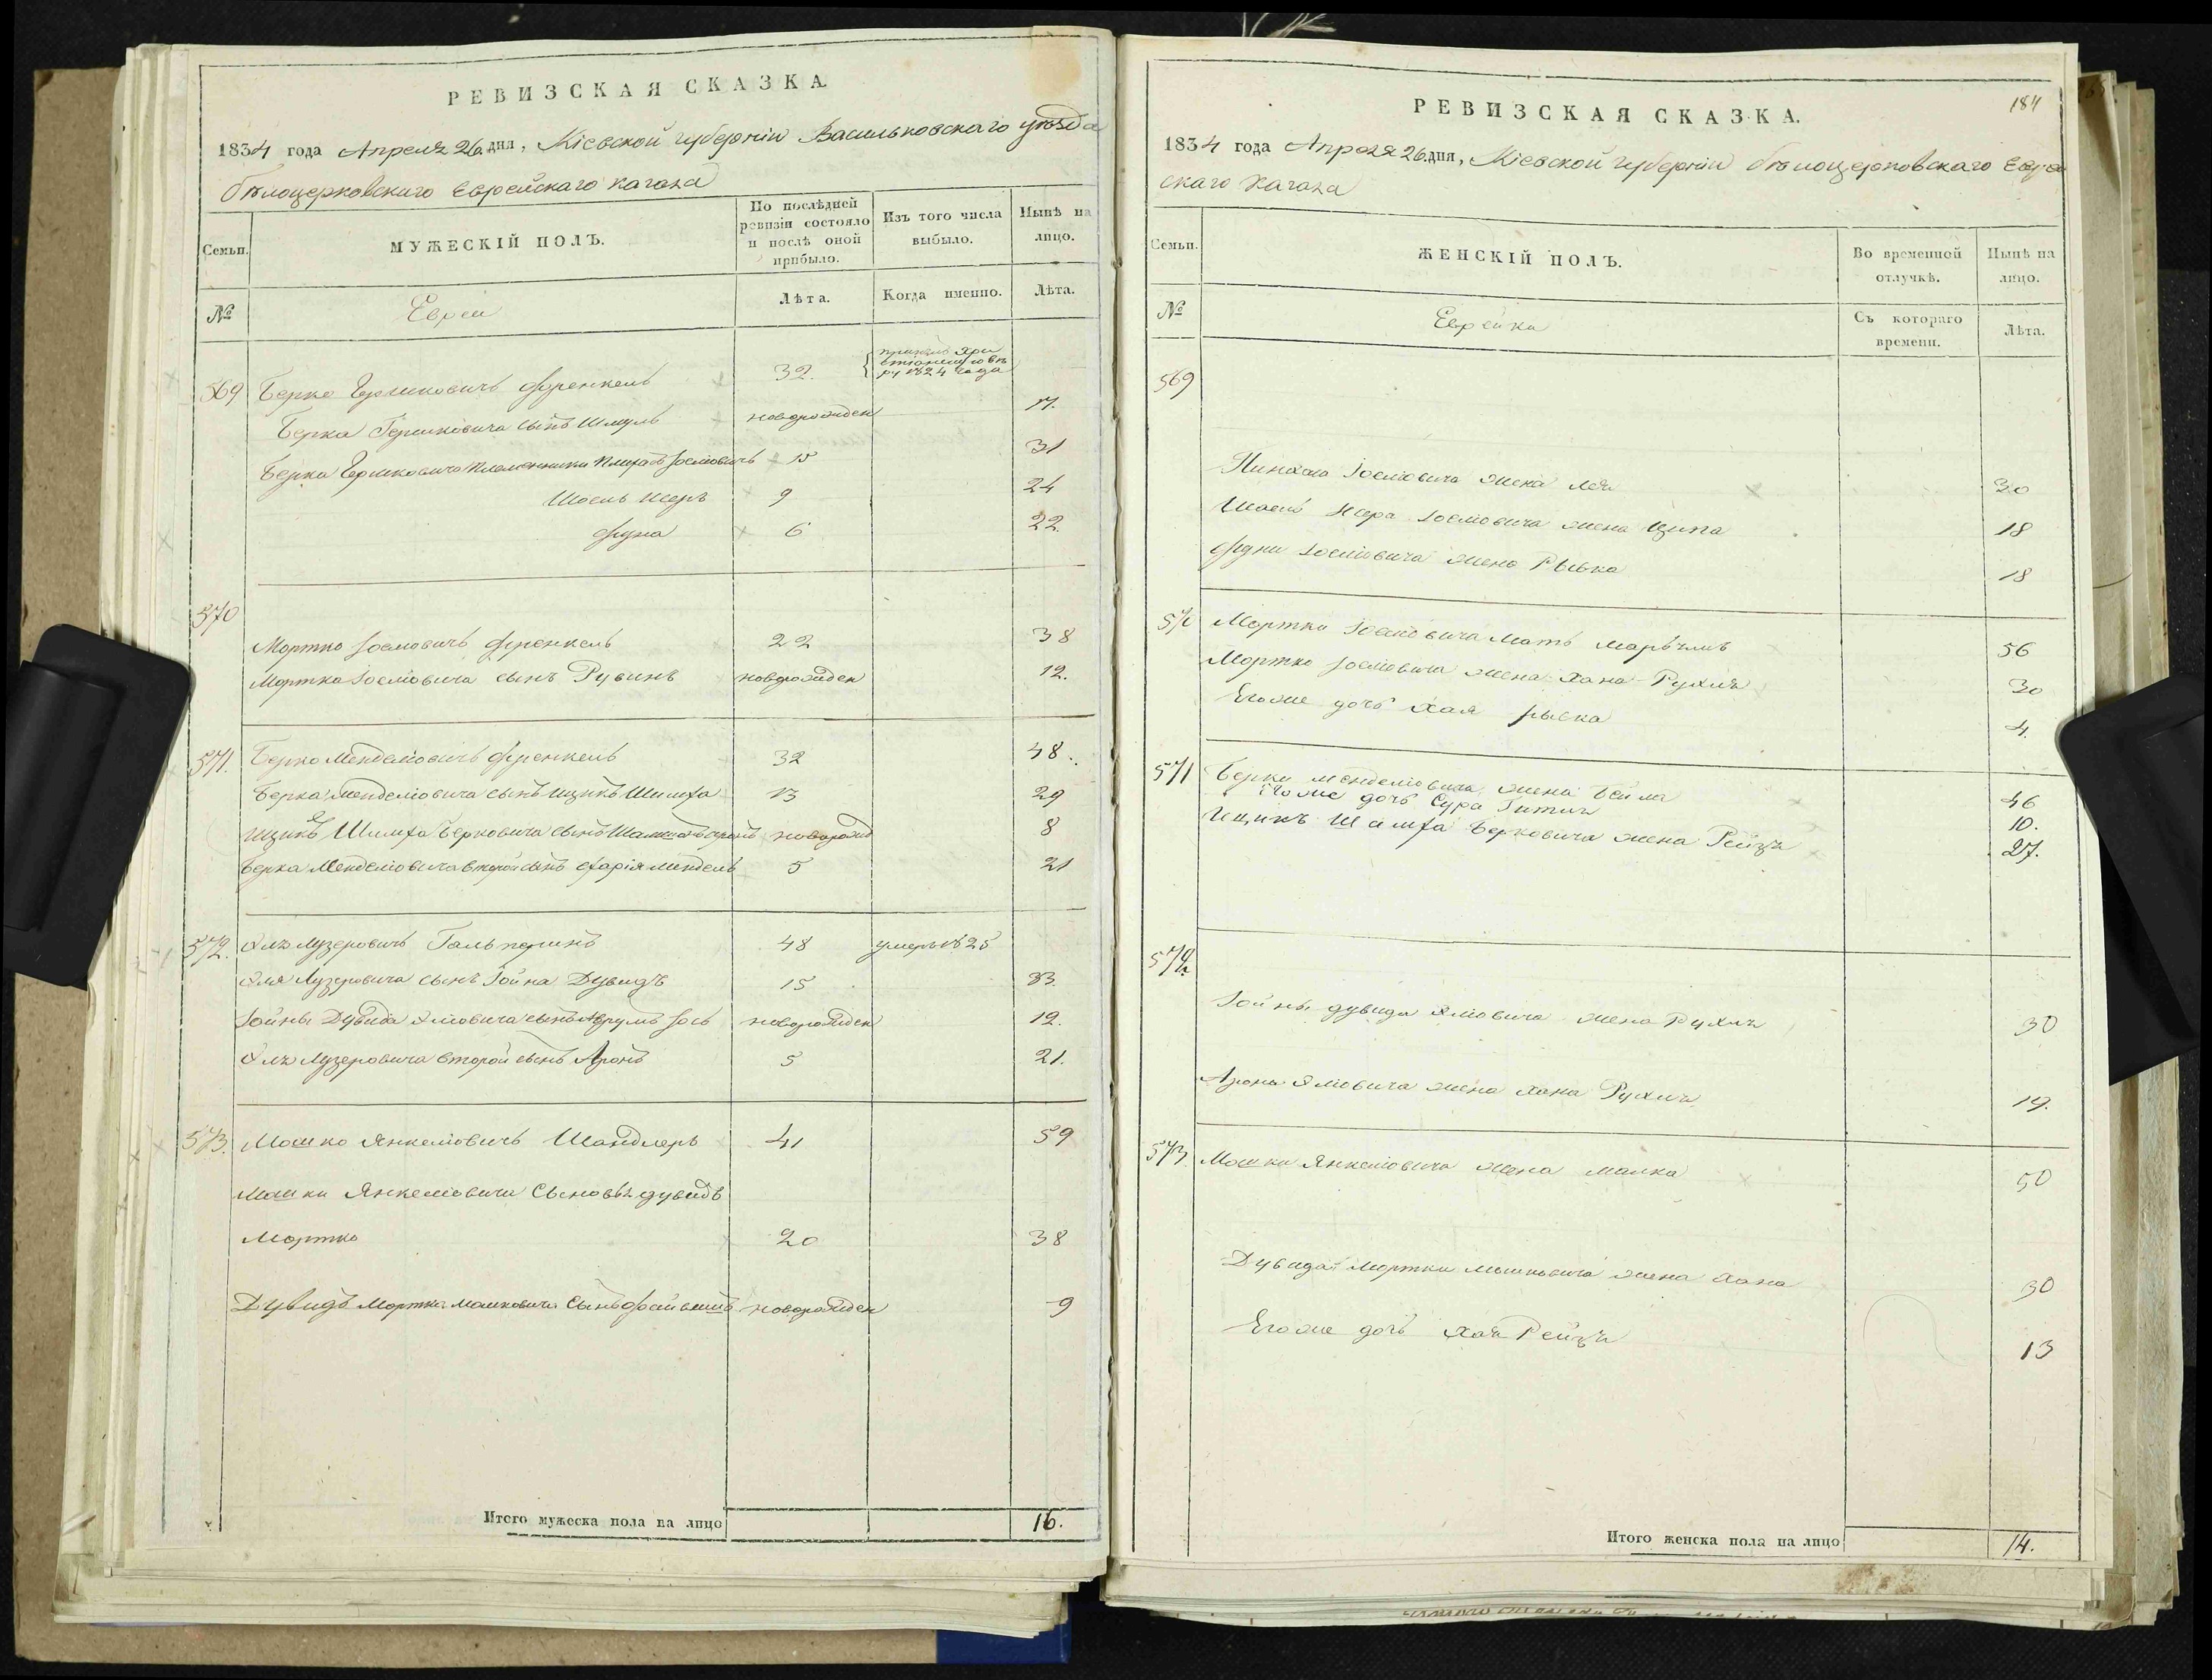 РЕВИЗСКАЯ СКАЗКА
1834 года Апреля 26 дня, Кіевской губерніи Васильковскаго уѣзда
бѣлоцерковскаго Еврейскаго кагала
Семьи.
МУЖЕСКІЙ ПОЛЪ.
По послѣдней ревизіи состояло и послѣ оной прибыло.
Изъ того числа выбыло.
Нынѣ на лицо.
№
Евреи
Лѣта.
Когда именно.
Лѣта.
569 Берко Гершковичъ Френкель 32. 1824 года
Берка Гершковича сынъ Шмуль новорожден 17.
Берка Гершковича племянники Пинхасъ Іосіовичъ 15 31
9 24
Фуна 6 22.
570
Мортко Іосіовичъ Френкель 22 38
Мортка Іосіовича сынъ Рувинъ новорожден 12.
571. Берко Менделіовичъ Френкель 32 48.
Берка Менделіовича сынъ Ицикъ Шимха 13 29
Ицикъ Шимха Берковича сынъ новорожд 8
Берка Менделіовича второй сынъ Мендель 5 21
572. Эль Лузеровичъ Гальперинъ 48 умеръ 1825
Эля Лузеровича сынъ Іойна Дувидъ 15 33.
Іойны Дувида Эліовича сынъ Аврумъ Іось новорожден 12.
Эль Лузеровича второй сынъ Аронъ 5 21.
573. Мошко Янкеліовичъ Шандлеръ 41 59
Мошки Янкеліовича Сыновья дувидъ
Мортко 20 38
Дувидъ Мортка Мошковича Сынъ новорожден 9
Итого мужеска пола на лицо 16.
184
РЕВИЗСКАЯ СКАЗКА.
1834 года Апреля 26 дня, Кіевской губерніи бѣлоцерковскаго Еврей
скаго кагала
Семьи.
ЖЕНСКІЙ ПОЛЪ.
Во временной отлучкѣ.
Нынѣ на лицо.
№
Еврейки
Съ котораго времени.
Лѣта.
569
Пинхаса Іосіовича жена Лея 30
Іосіовича жена Ципа 18
Фуни Іосіовича жена Рывка 18
570 Мортки Іосіовича мать 56
Мортко Іосіовича жена Хана Рухля 30
Его же дочь Хая Рыска 4.
571 Берки Менделіовича жена Бейла 46
Его же дочь Сура Гитля 10.
Ицикъ Шимха Берковича жена Рейзя 27.
572.
Іойны дувида Эліовича жена Рухля 30
Арона Эліовича жена Хана Рухля 19.
573. Мошки Янкеліовича жена Малка 50
Дувида Мортки Мошковича жена Хана 30
Его же дочь Хая Рейзя 13
Итого женска пола на лицо 14.